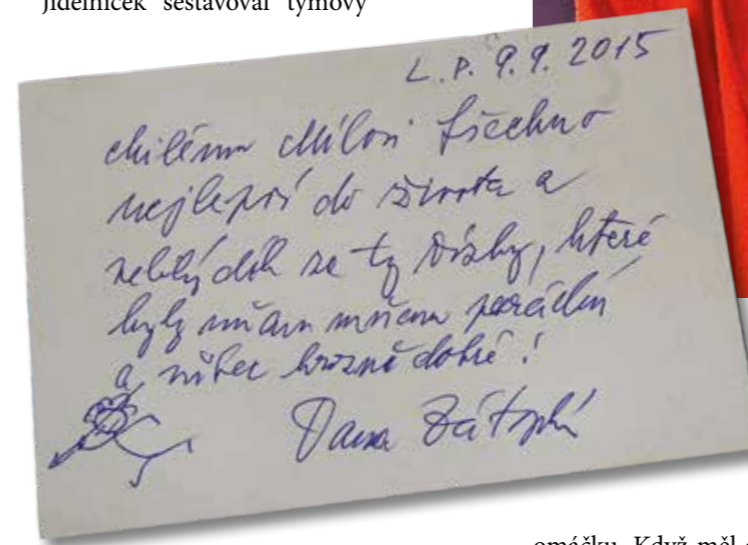 jídelníček sestavoval týmový
L.P. 9.9. 2015
milému Milošovi všechno
nejlepší do života a
velký dík za ty řízky, které
byly mňam mňam parádní
a vůbec hrozně dobré!
Dana Zátopková
omáčku. Když měl